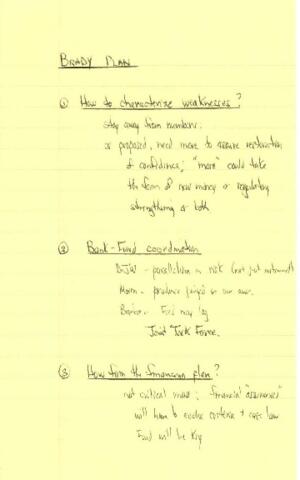 BRADY PLAN
① How to characterize weaknesses?
stay away from numbers;
as proposed, need more to assure restoration
of confidence; "more" could take
the form of new money or regulatory
strengthening or both
② Bank-Fund coordination
- parallelism in risk (not just
- produce paper on our own.
- Fund may lag
Joint Task Force.
③ How firm the financing plan?
not critical mass; financial "assurances"
will have to evolve criteria + case law
Fund will be key